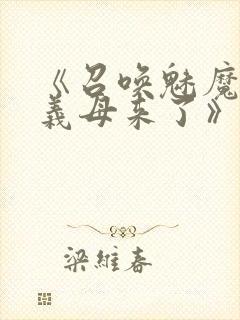 《召唤魅魔
義母来了》
梁維春